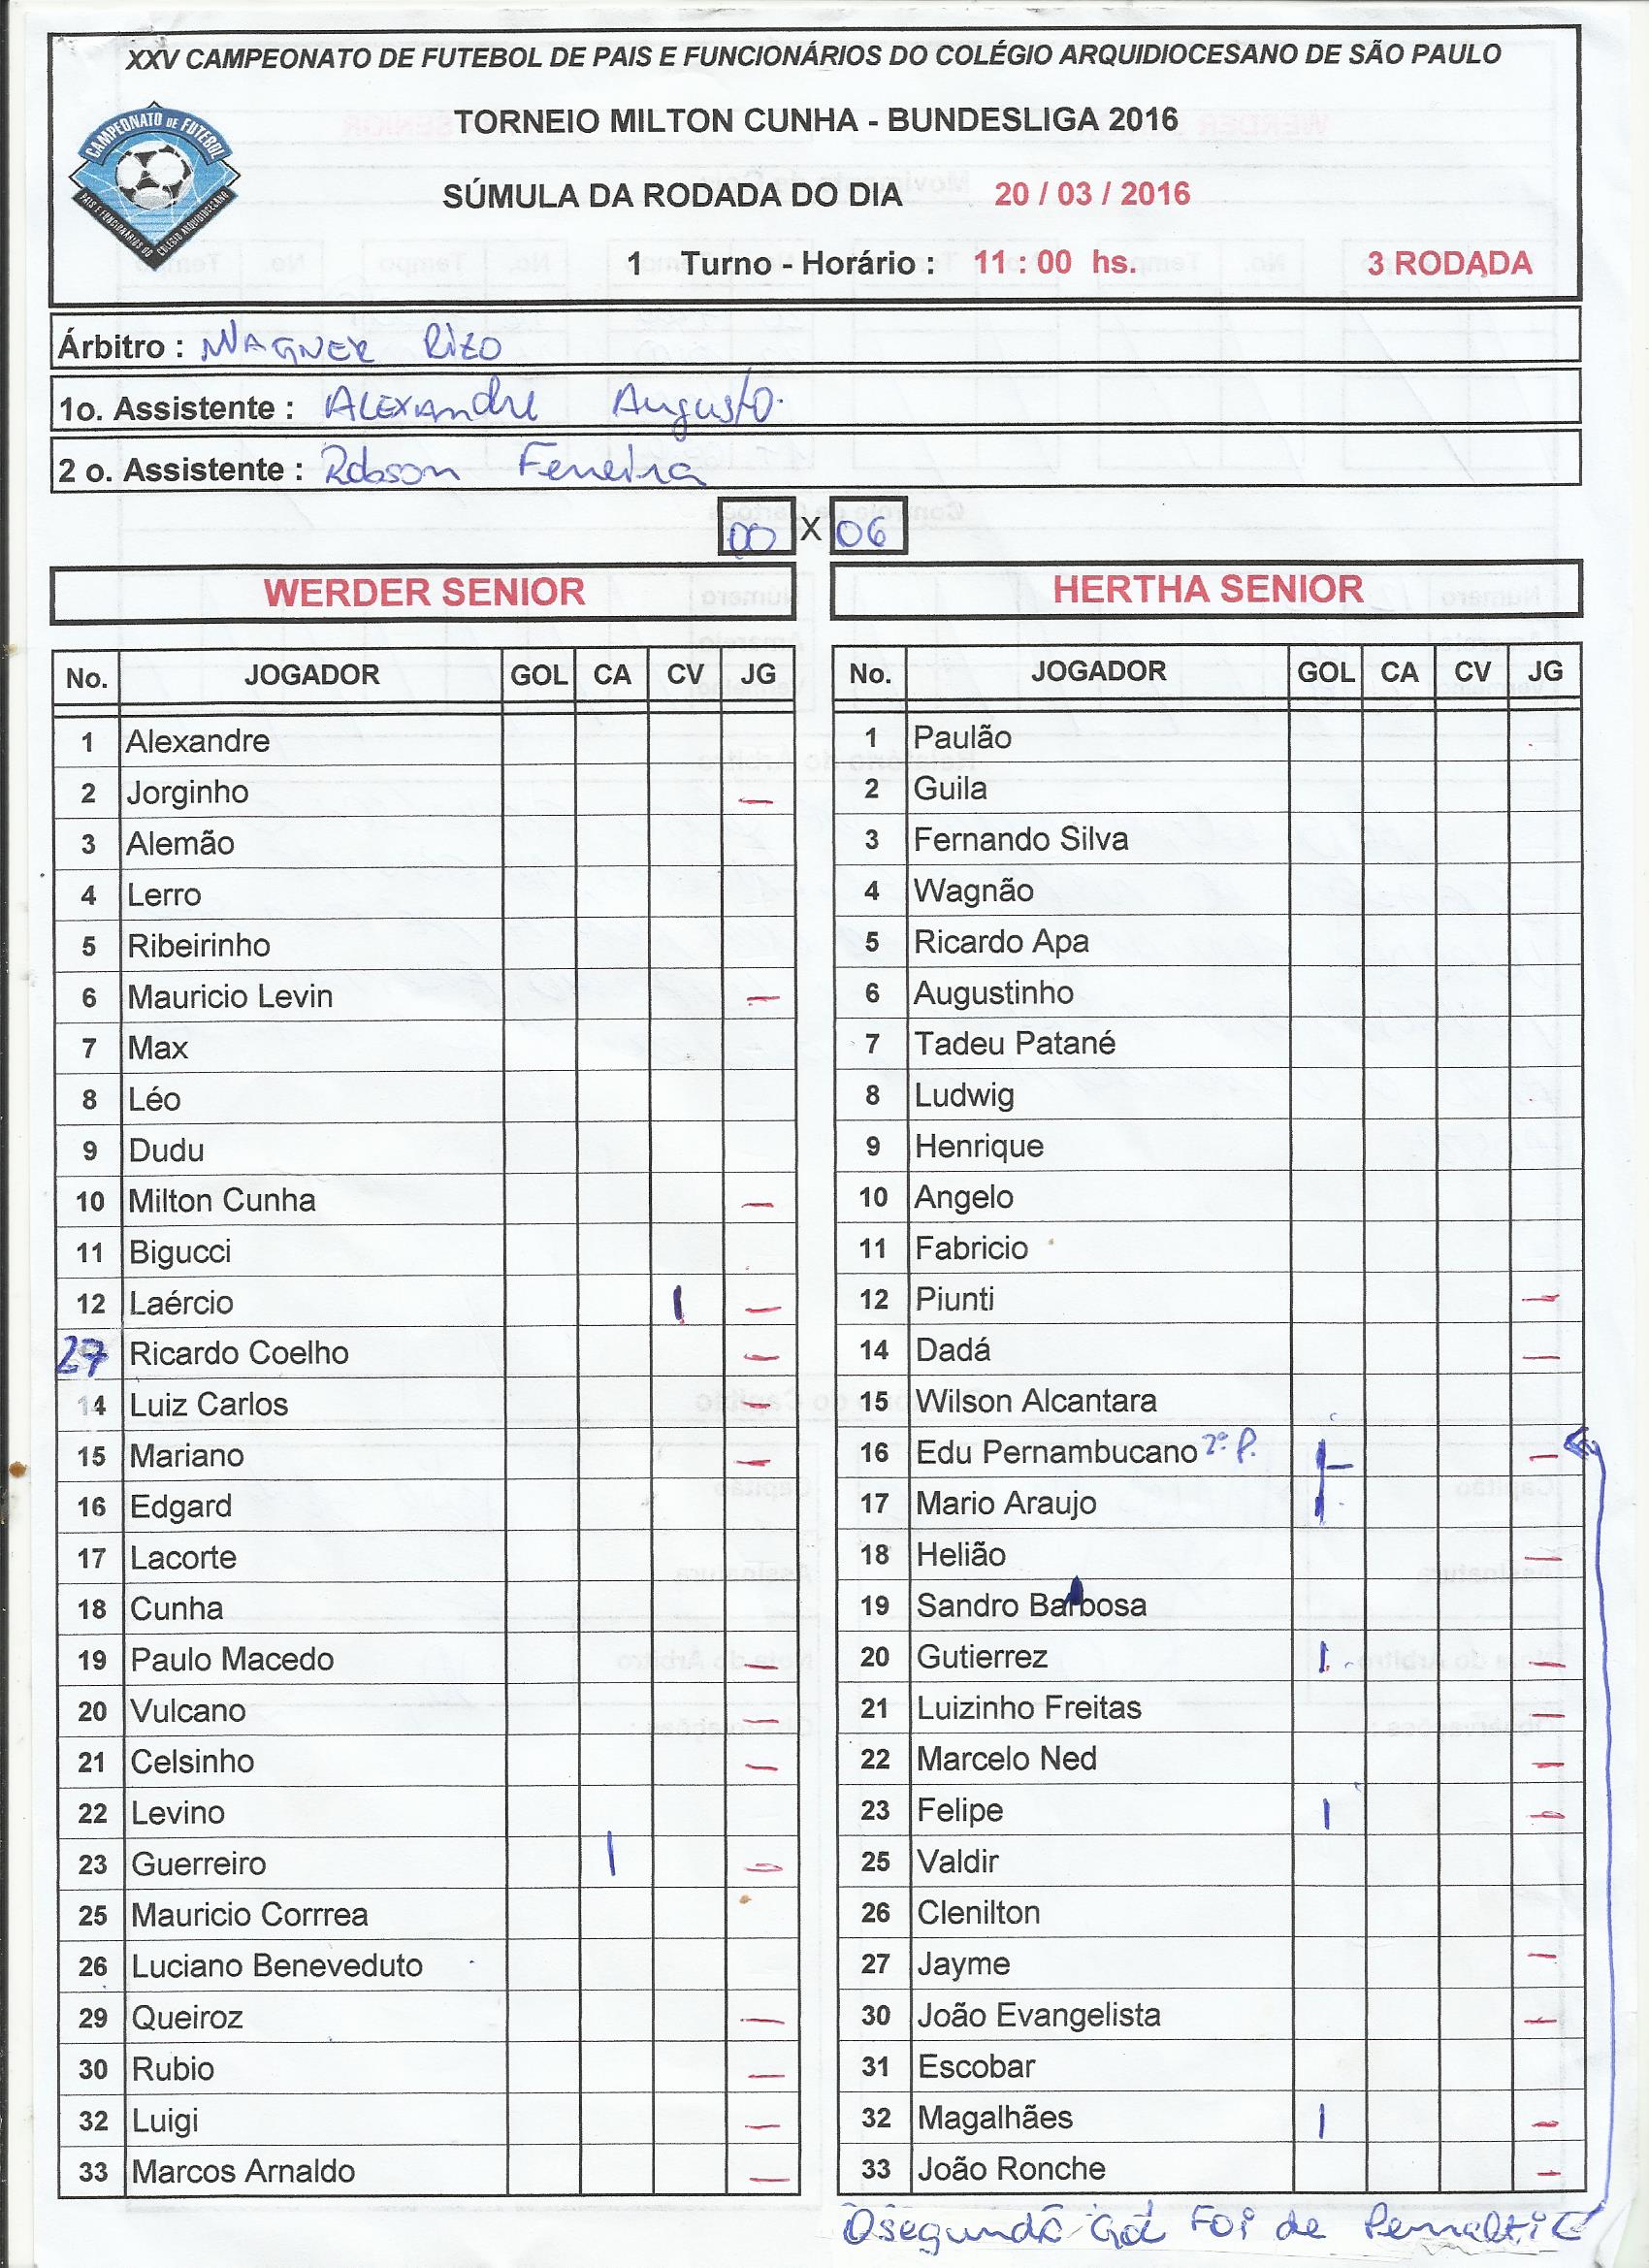 XXV CAMPEONATO DE FUTEBOL DE PAIS E FUNCIONÁRIOS DO COLÉGIO ARQUIDIOCESANO DE SÃO PAULO
CAMPEONATO DE FUTEBOL
PAIS E FUNCIONÁRIOS DO COLÉGIO ARQUIDIOCESANO
TORNEIO MILTON CUNHA - BUNDESLIGA 2016
SÚMULA DA RODADA DO DIA 20 / 03 / 2016
1 Turno - Horário : 11 : 00 hs. 3 RODADA
Árbitro : WAGNER Rizo
1o. Assistente : ALEXANDRE Augusto.
2 o. Assistente : Robson Ferreira
00 X 06
WERDER SENIOR HERTHA SENIOR
No. JOGADOR GOL CA CV JG
1 Alexandre
2 Jorginho —
3 Alemão
4 Lerro
5 Ribeirinho
6 Mauricio Levin —
7 Max
8 Léo
9 Dudu
10 Milton Cunha —
11 Bigucci
12 Laércio | —
27 Ricardo Coelho —
14 Luiz Carlos —
15 Mariano —
16 Edgard
17 Lacorte
18 Cunha
19 Paulo Macedo —
20 Vulcano —
21 Celsinho —
22 Levino
23 Guerreiro | —
25 Mauricio Corrrea
26 Luciano Beneveduto
29 Queiroz —
30 Rubio —
32 Luigi —
33 Marcos Arnaldo —
No. JOGADOR GOL CA CV JG
1 Paulão
2 Guila
3 Fernando Silva
4 Wagnão
5 Ricardo Apa
6 Augustinho
7 Tadeu Patané
8 Ludwig
9 Henrique
10 Angelo
11 Fabricio
12 Piunti —
14 Dadá —
15 Wilson Alcantara
16 Edu Pernambucano 2º P. | —
17 Mario Araujo |
18 Helião —
19 Sandro Barbosa
20 Gutierrez | —
21 Luizinho Freitas —
22 Marcelo Ned —
23 Felipe | —
25 Valdir
26 Clenilton
27 Jayme —
30 João Evangelista —
31 Escobar
32 Magalhães | —
33 João Ronche —
O segundo Gol Foi de